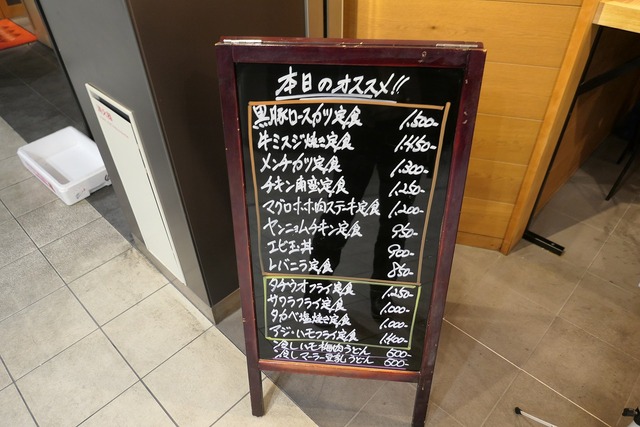 本日のオススメ!!
黒豚ロースカツ定食 1.500-
牛ミスジ焼き定食 1.450-
メンチカツ定食 1.300-
チキン南蛮定食 1.250-
マグロホホ肉ステーキ定食 1.200-
ヤンニョムチキン定食 950-
エビ玉丼 900-
レバニラ定食 850-
タチウオフライ定食 1.250-
サワラフライ定食 1.000-
タカベ塩焼き定食 1.000-
アジ・ハモフライ定食 1.400-
冷しハモ梅肉うどん 600-
冷しマーラー豆乳うどん 600-